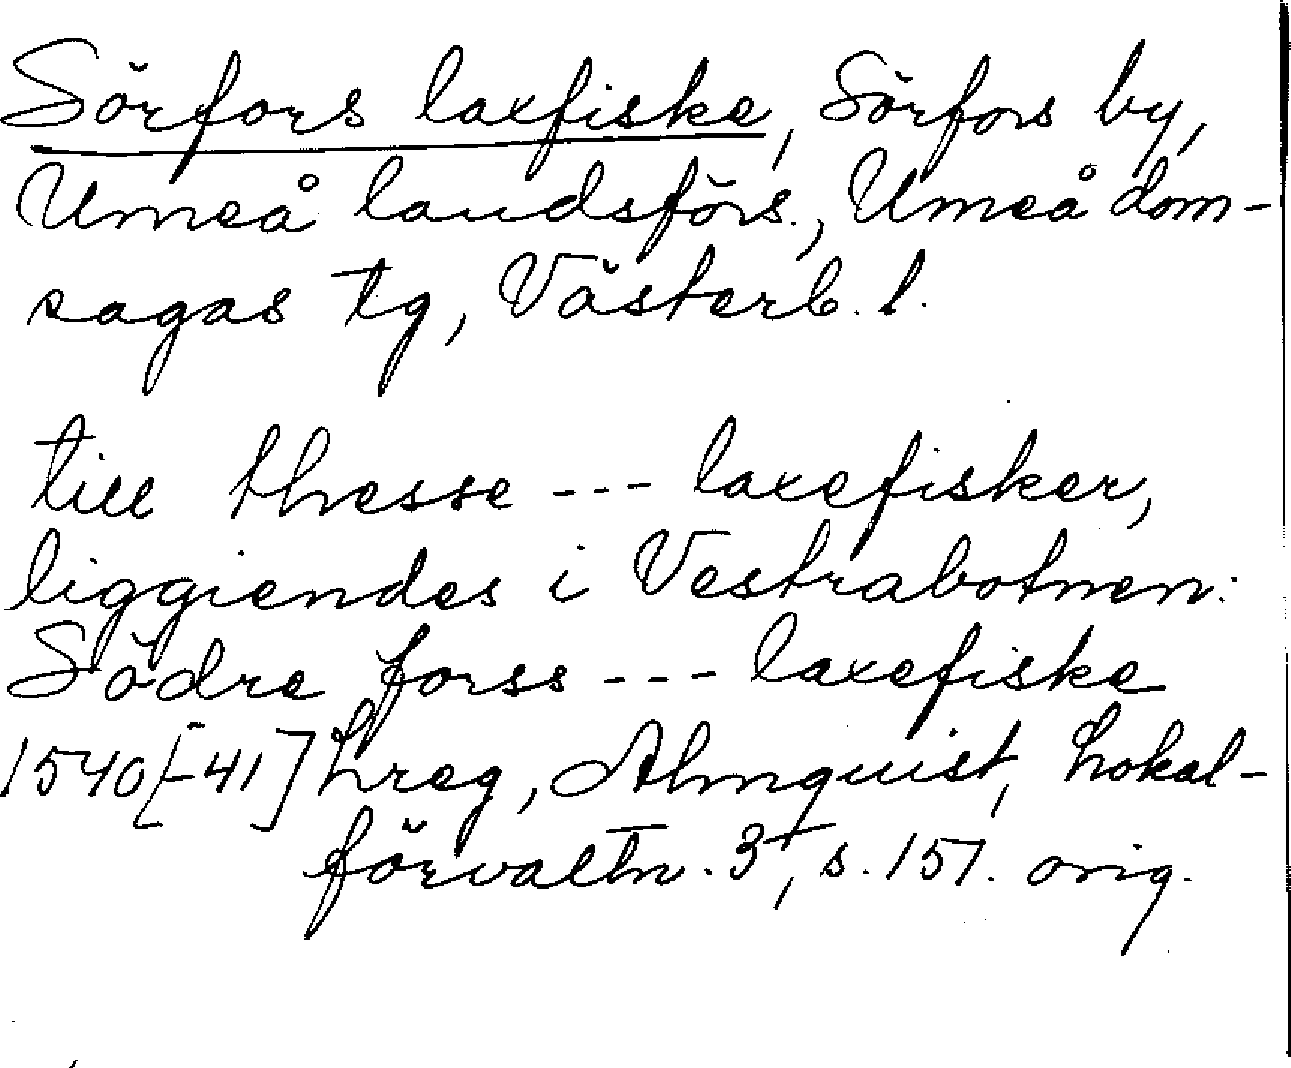 Sörfors laxfiske, Sörfors by,
Umeå landsförs., Umeå dom-
sagas tg, Västerb. l.
till thesse --- laxefisker,
liggiendes i Vestrabotnen:
Södre forss --- laxefiske
1540[-41] Lreg, Almquist, Lokal-
förvaltn. 3, s. 151. orig.